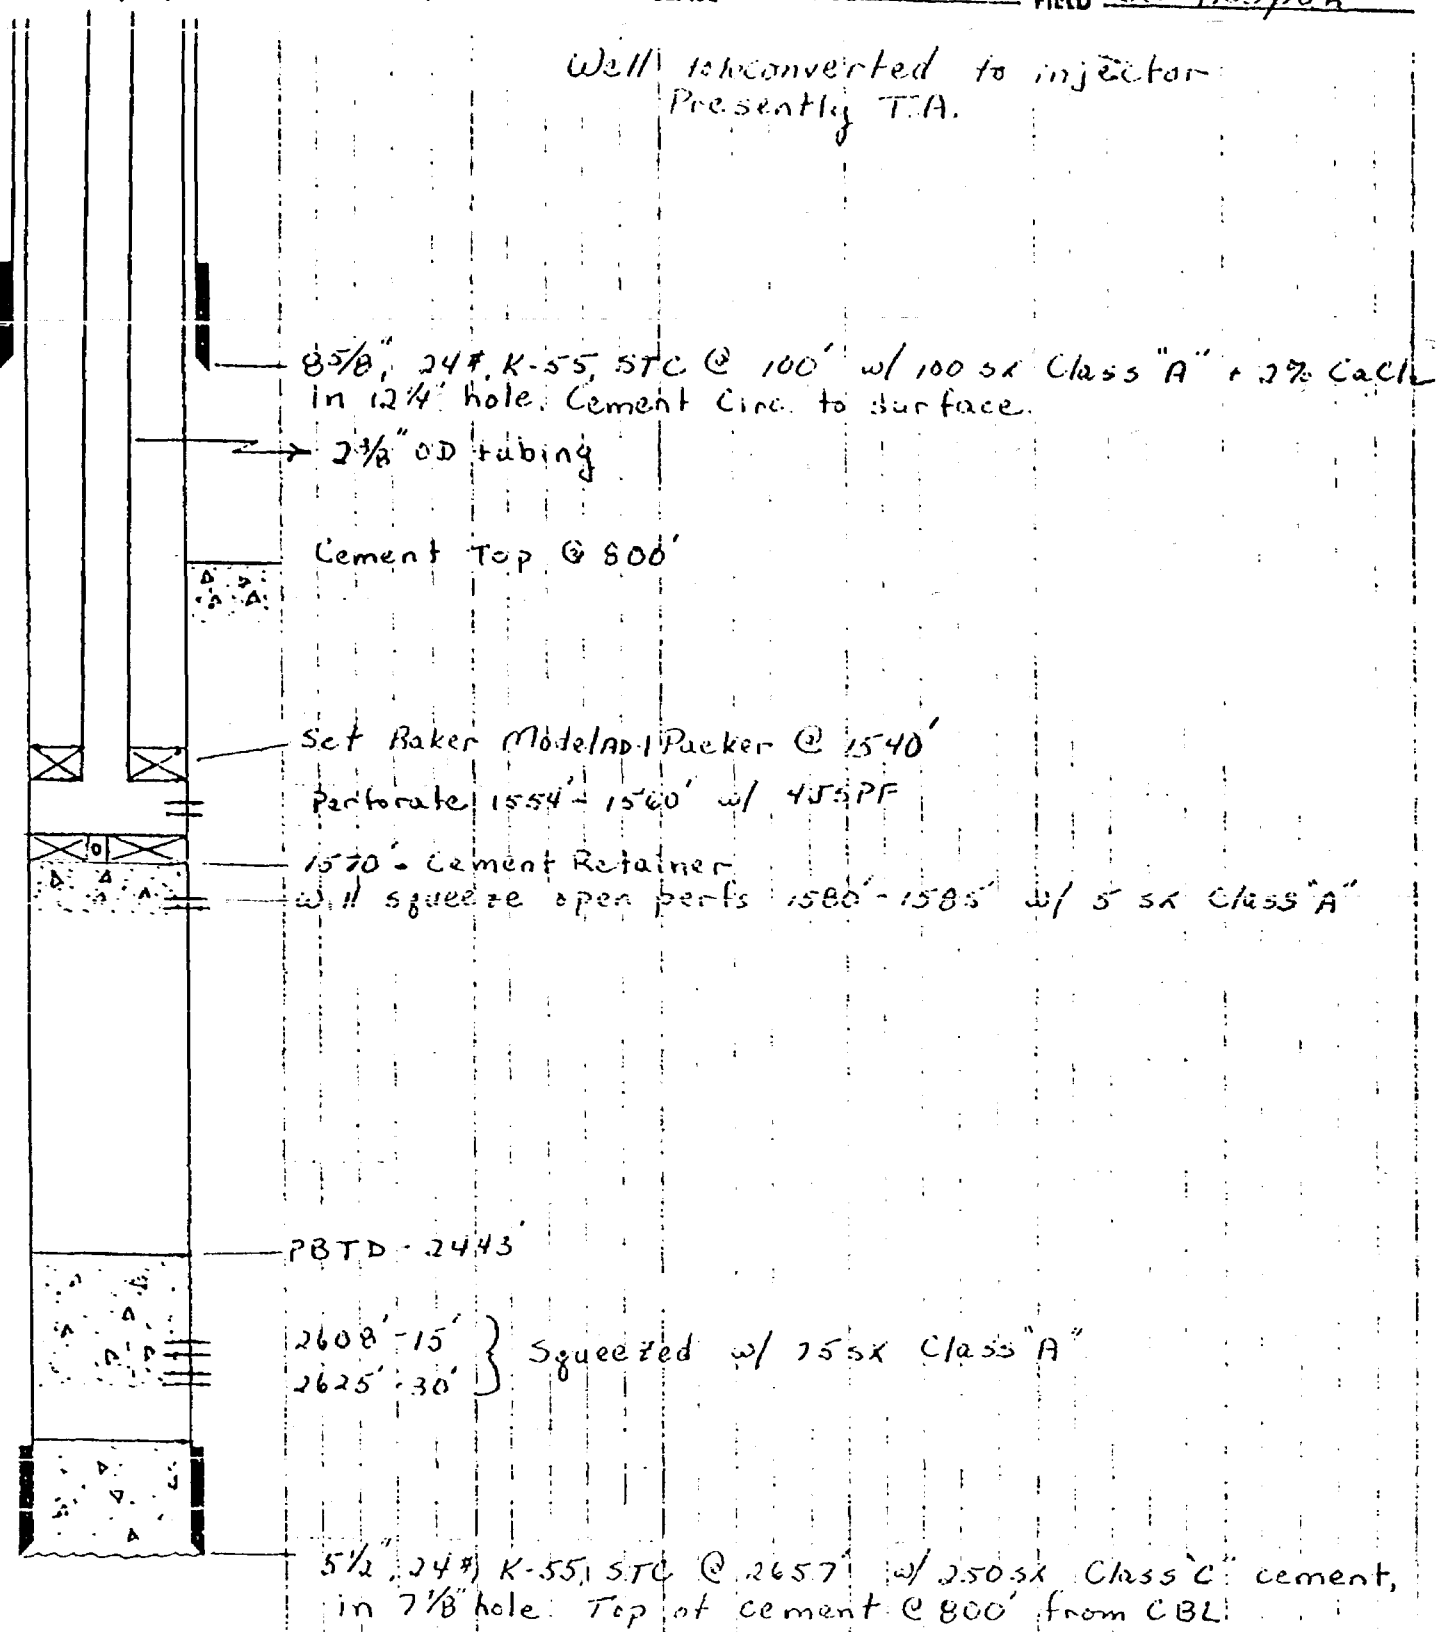 FIELD
Well to be converted to injector
Presently T.A.
8 5/8", 24#, K-55, STC @ 100' w/ 100 sx Class "A" + 2% CaCl2
in 12 1/4" hole. Cement Circ. to surface.
2 3/8" OD tubing
Cement Top @ 800'
Set Baker Model AD-1 Packer @ 1540'
Perforate 1554' - 1560' w/ 4 JSPF
1570' - Cement Retainer
Will squeeze open perfs 1580' - 1585' w/ 5 sx Class "A"
PBTD - 2443'
2608' - 15'
2625' - 30'
} Squeezed w/ 75 sx Class "A"
5 1/2", 24#, K-55, STC @ 2657' w/ 250 sx Class "C" cement,
in 7 7/8" hole. Top of cement @ 800' from CBL.